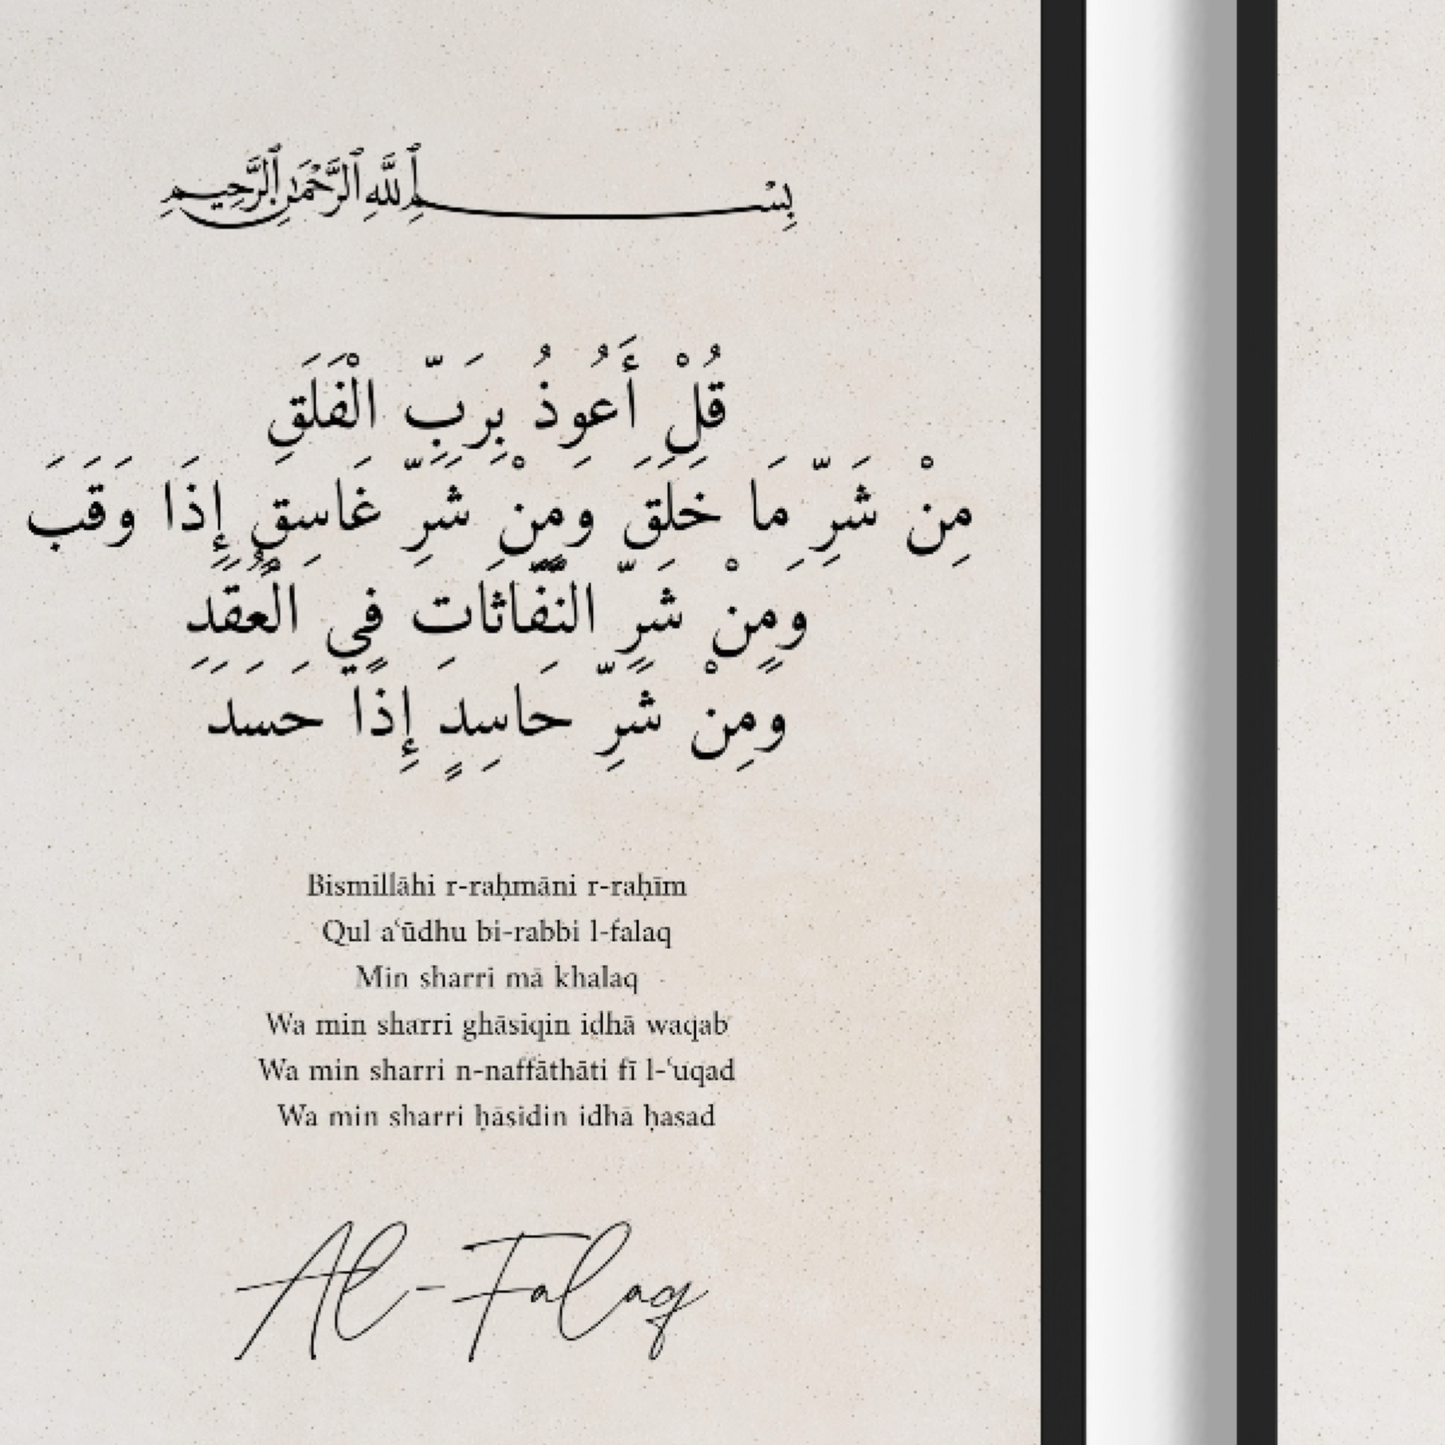 بِسْمِ ٱللَّهِ ٱلرَّحْمَٰنِ ٱلرَّحِيمِ
قُلْ أَعُوذُ بِرَبِّ الْفَلَقِ
مِنْ شَرِّ مَا خَلَقَ وَمِنْ شَرِّ غَاسِقٍ إِذَا وَقَبَ
وَمِنْ شَرِّ النَّفَّاثَاتِ فِي الْعُقَدِ
وَمِنْ شَرِّ حَاسِدٍ إِذَا حَسَدَ
Bismillāhi r-raḥmāni r-raḥīm
Qul aʿūdhu bi-rabbi l-falaq
Min sharri mā khalaq
Wa min sharri ghāsiqin idhā waqab
Wa min sharri n-naffāthāti fī l-ʿuqad
Wa min sharri ḥāsidin idhā ḥasad
Al-Falaq